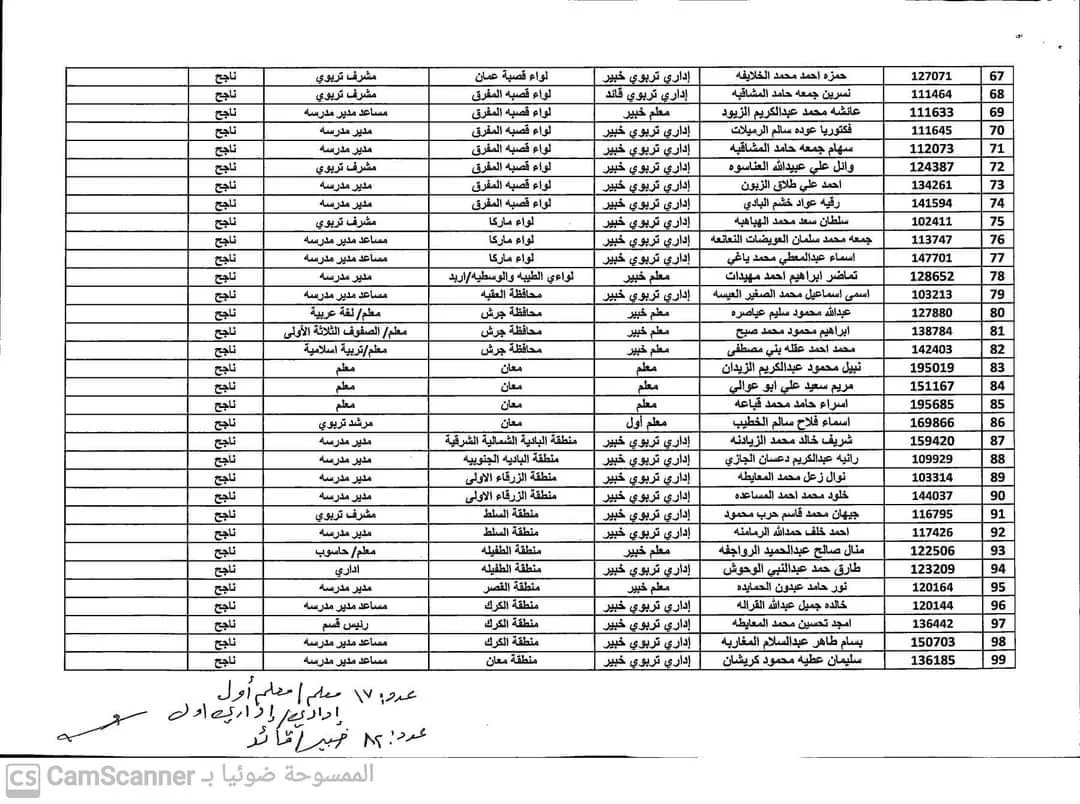 67 127071 حمزه احمد محمد الخلايفه إداري تربوي خبير لواء قصبة عمان مشرف تربوي ناجح
68 111464 نسرين جمعه حامد المشاقبه إداري تربوي قائد لواء قصبه المفرق مشرف تربوي ناجح
69 111633 عائشه محمد عبدالكريم الزيود معلم خبير لواء قصبه المفرق مساعد مدير مدرسه ناجح
70 111645 فكتوريا عوده سالم الرميلات إداري تربوي خبير لواء قصبه المفرق مدير مدرسه ناجح
71 112073 سهام جمعه حامد المشاقبه إداري تربوي خبير لواء قصبه المفرق مدير مدرسه ناجح
72 124387 وائل علي عبيدالله العناسوه إداري تربوي خبير لواء قصبه المفرق مشرف تربوي ناجح
73 134261 احمد علي طلاق الزبون إداري تربوي خبير لواء قصبه المفرق مدير مدرسه ناجح
74 141594 رقيه عواد خشم البادي إداري تربوي خبير لواء قصبه المفرق مدير مدرسه ناجح
75 102411 سلطان سعد محمد الهباهبه إداري تربوي خبير لواء ماركا مشرف تربوي ناجح
76 113747 جمعه محمد سلمان العويضات النعانعه إداري تربوي خبير لواء ماركا مساعد مدير مدرسه ناجح
77 147701 اسماء عبدالمعطي محمد ياغي إداري تربوي خبير لواء ماركا مساعد مدير مدرسه ناجح
78 128652 تماضر ابراهيم احمد مهيدات معلم خبير لواءي الطيبه والوسطيه/اربد مدير مدرسه ناجح
79 103213 اسمى اسماعيل محمد الصغير العيسه إداري تربوي خبير محافظة العقبه مساعد مدير مدرسه ناجح
80 127880 عبدالله محمود سليم عياصره معلم خبير محافظة جرش معلم/ لغة عربية ناجح
81 138784 ابراهيم محمود محمد صبح معلم خبير محافظة جرش معلم/ الصفوف الثلاثة الأولى ناجح
82 142403 محمد احمد عقله بني مصطفى معلم خبير محافظة جرش معلم/تربية اسلامية ناجح
83 195019 نبيل محمود عبدالكريم الزيدان معلم معان معلم ناجح
84 151167 مريم سعيد علي ابو عوالي معلم معان معلم ناجح
85 195685 اسراء حامد محمد قباعه معلم معان معلم ناجح
86 169866 اسماء فلاح سالم الخطيب معلم أول معان مرشد تربوي ناجح
87 159420 شريف خالد محمد الزيادنه إداري تربوي خبير منطقة البادية الشمالية الشرقية مدير مدرسه ناجح
88 109929 رانيه عبدالكريم دعسان الجازي إداري تربوي خبير منطقة الباديه الجنوبيه مدير مدرسه ناجح
89 103314 نوال زعل محمد المعايطه إداري تربوي خبير منطقة الزرقاء الاولى مدير مدرسه ناجح
90 144037 خلود محمد احمد المساعده إداري تربوي خبير منطقة الزرقاء الاولى مدير مدرسه ناجح
91 116795 جيهان محمد قاسم حرب محمود إداري تربوي خبير منطقة السلط مشرف تربوي ناجح
92 117426 احمد خلف حمدالله الرمامنه إداري تربوي خبير منطقة السلط مدير مدرسه ناجح
93 122506 منال صالح عبدالحميد الرواجفه معلم خبير منطقة الطفيله معلم/ حاسوب ناجح
94 123209 طارق حمد عبدالنبي الوحوش إداري تربوي خبير منطقة الطفيله اداري ناجح
95 120164 نور حامد عبدون الحمايده معلم خبير منطقة القصر مدير مدرسه ناجح
96 120144 خالده جميل عبدالله القراله إداري تربوي خبير منطقة الكرك مساعد مدير مدرسه ناجح
97 136442 امجد تحسين محمد المعايطه إداري تربوي خبير منطقة الكرك رئيس قسم ناجح
98 150703 بسام طاهر عبدالسلام المغاربه إداري تربوي خبير منطقة الكرك مساعد مدير مدرسه ناجح
99 136185 سليمان عطيه محمود كريشان إداري تربوي خبير منطقة معان مساعد مدير مدرسه ناجح
عدد: ١٧ معلم/ معلم أول
إداري/ إداري اول
عدد: ٨٢ خبير/ قائد
الممسوحة ضوئيا بـ CamScanner
CS